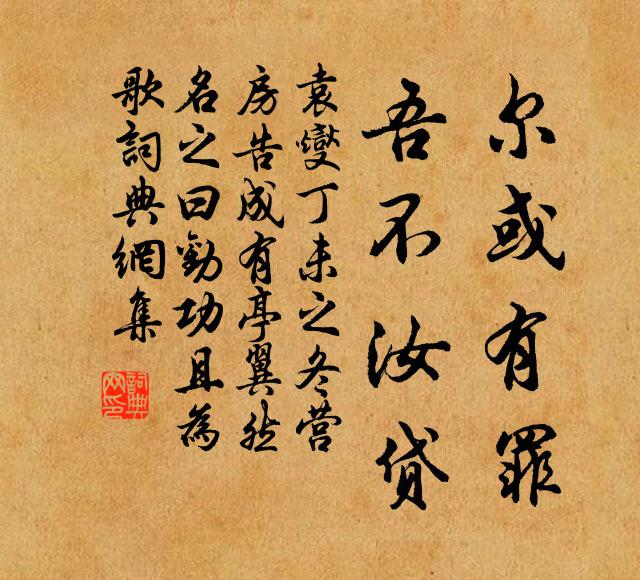 尔或有罪
吾不汝贷
袁燮丁未之冬营
房告成有亭翼然
名之曰劝功且为
歌詞典網集
詞典
网印